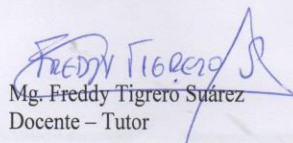 FREDDY TIGRERO S
Mg. Freddy Tigrero Suárez
Docente – Tutor